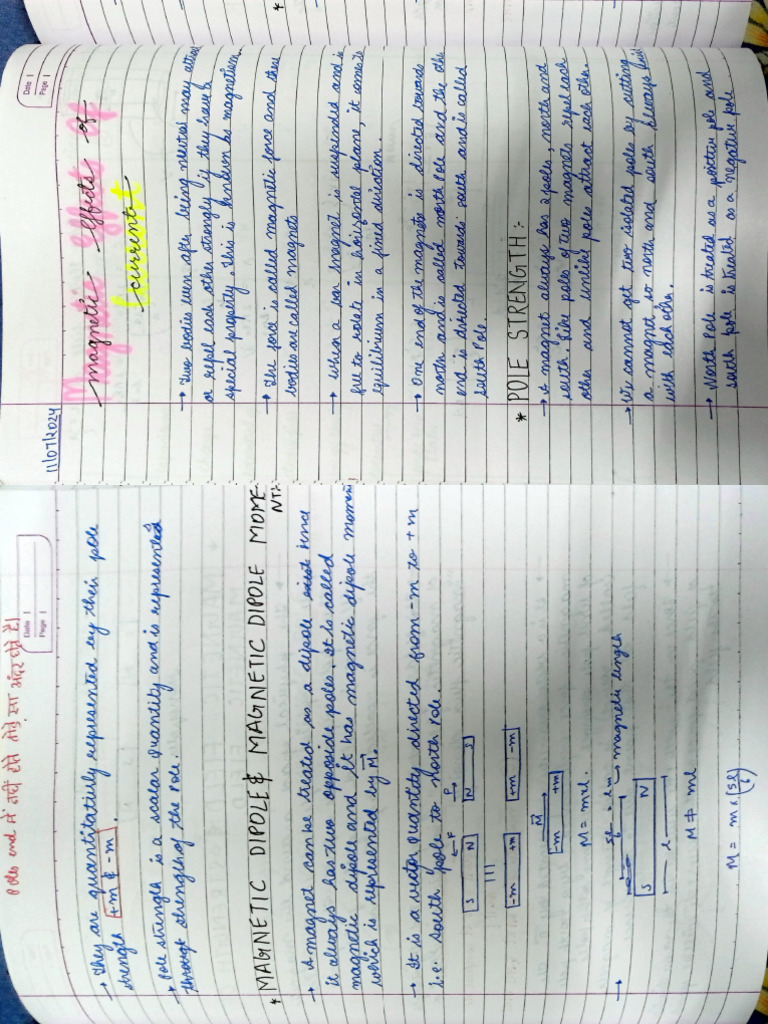 Date
Page
11/07/2024
Magnetic effects of
current
→ Two bodies even after being neutral may attract
or repel each other strongly if they have a
special property, this is known as magnetism
→ The force is called magnetic force and these
bodies are called magnets
→ When a bar magnet is suspended and is
free to rotate in horizontal plane, it comes to
equilibrium in a fixed direction.
→ One end of the magnets is directed towards
north and is called north Pole and the other
end is directed towards south and is called
South Pole.
* POLE STRENGTH:-
→ A magnet always has 2 poles, north and
south. Like poles of two magnets repel each
other and unlike poles attract each other.
→ We cannot get two isolated poles by cutting
a magnet, so north and south always
with each other.
→ North Pole is treated as a positive pole and
south pole is treated as a negative pole
Date
Page
Poles end में नहीं होते थोड़े सा अंदर होते हैं।
→ They are quantitatively represented by their pole
strength +m & -m.
→ Pole strength is a scalar quantity and is represented
through strength of the Pole.
* MAGNETIC DIPOLE & MAGNETIC DIPOLE MOME-
NT:-
→ A magnet can be treated as a dipole since
it always has two opposite poles, it is called
magnetic dipole and it has magnetic dipole moment
which is represented by M.
→ It is a vector quantity directed from -m to +m
i.e. South pole to North Pole.
←F F→
S N N S
-m +m +m -m
M
-m +m
M = ml.
→ magnetic length
S N
l
M ≠ ml
M = m × (5l/6)